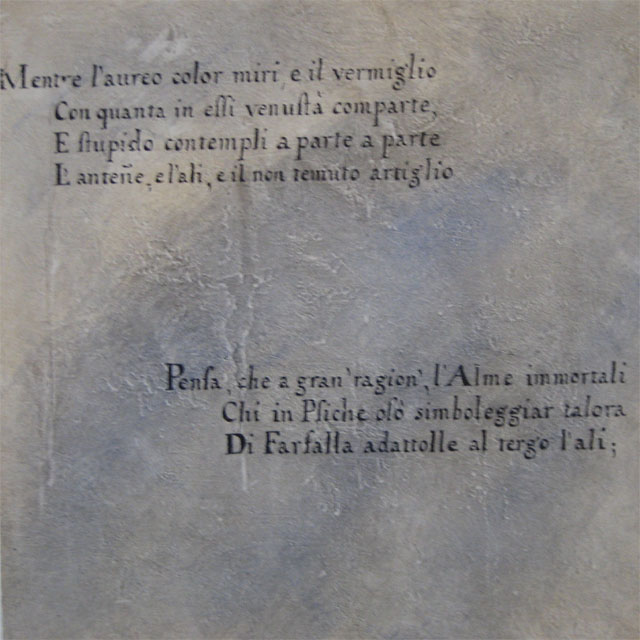 Mentre l'aureo color miri, e il vermiglio
Con quanta in essi venustà comparte,
E stupido contempli a parte a parte
L'anteñe, e l'ali, e il non temuto artiglio
Pensa, che a gran' ragion', l'Alme immortali
Chi in Psiche osò simboleggiar talora
Di Farfalla adattolle al tergo l'ali;